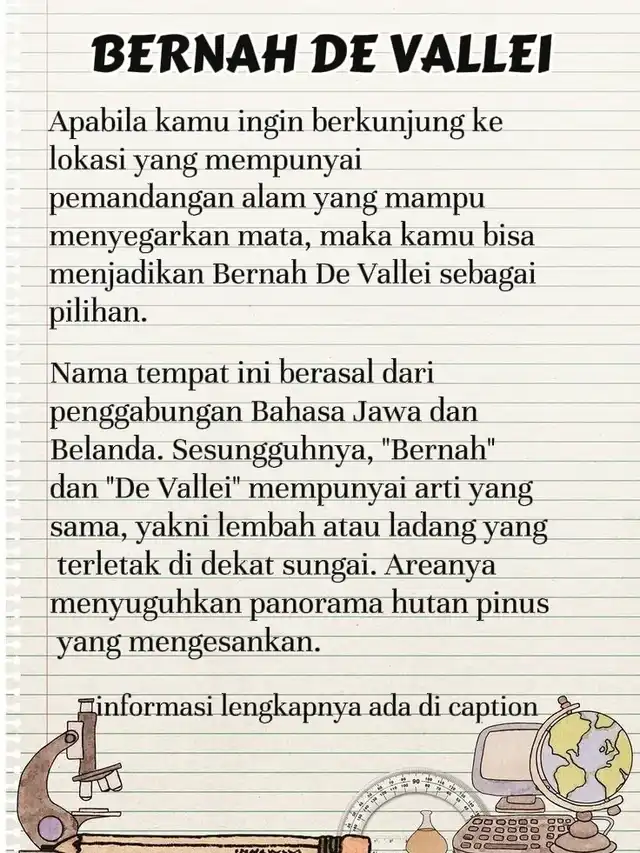 BERNAH DE VALLEI
Apabila kamu ingin berkunjung ke
lokasi yang mempunyai
pemandangan alam yang mampu
menyegarkan mata, maka kamu bisa
menjadikan Bernah De Vallei sebagai
pilihan.
Nama tempat ini berasal dari
penggabungan Bahasa Jawa dan
Belanda. Sesungguhnya, "Bernah"
dan "De Vallei" mempunyai arti yang
sama, yakni lembah atau ladang yang
terletak di dekat sungai. Areanya
menyuguhkan panorama hutan pinus
yang mengesankan.
informasi lengkapnya ada di caption